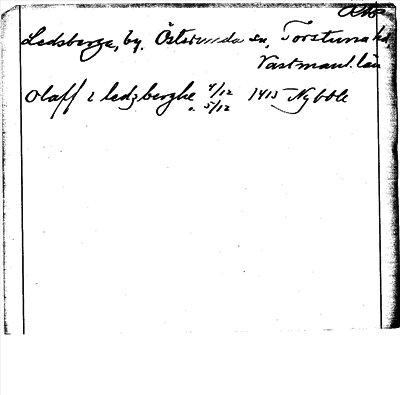 Ledsberga, by. Österunda sn, Torstuna hd
Västmanl. län
Olaff i ledzberghe 4/12 1413 Nybble
o. 5/12